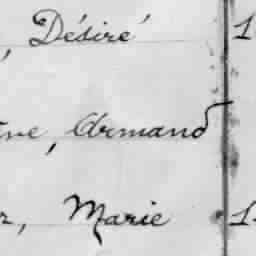 , Désiré 1
ne, Armand
r, Marie 1